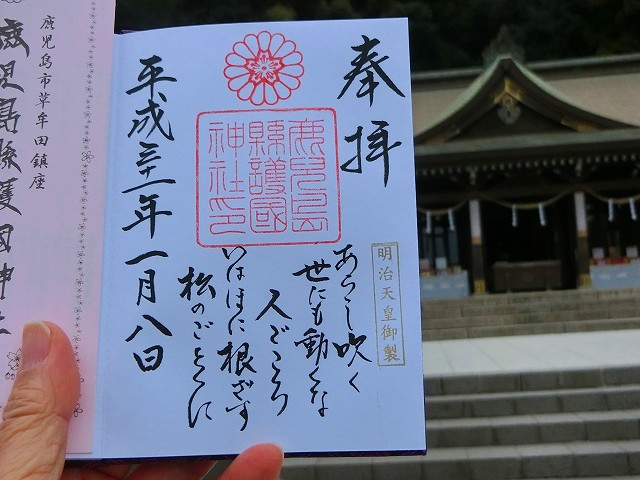 奉拝
明治天皇御製
あらし吹く
世にも動くな
人ごころ
いはほに根ざす
松のごとくに
鹿児島
縣護國
神社印
平成三十一年一月八日
鹿児島市草牟田鎮座
鹿児島縣護國神社